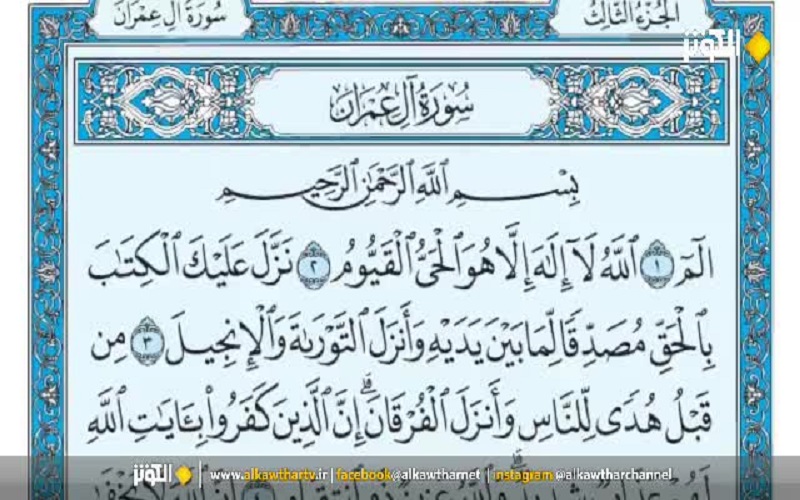 الجُزْءُ الثَّالِثُ
سُورَةُ آلِ عِمْرَانَ
الكوثر
سُورَةُ آلِ عِمْرَانَ
بِسْمِ ٱللَّهِ ٱلرَّحْمَٰنِ ٱلرَّحِيمِ
الٓمٓ ١ ٱللَّهُ لَآ إِلَٰهَ إِلَّا هُوَ ٱلْحَىُّ ٱلْقَيُّومُ ٢ نَزَّلَ عَلَيْكَ ٱلْكِتَٰبَ
بِٱلْحَقِّ مُصَدِّقًا لِّمَا بَيْنَ يَدَيْهِ وَأَنزَلَ ٱلتَّوْرَىٰةَ وَٱلْإِنجِيلَ ٣ مِن
قَبْلُ هُدًى لِّلنَّاسِ وَأَنزَلَ ٱلْفُرْقَانَ ۗ إِنَّ ٱلَّذِينَ كَفَرُوا۟ بِـَٔايَٰتِ ٱللَّهِ
الكوثر | www.alkawthartv.ir | facebook@alkawtharnet | instagram@alkawtharchannel